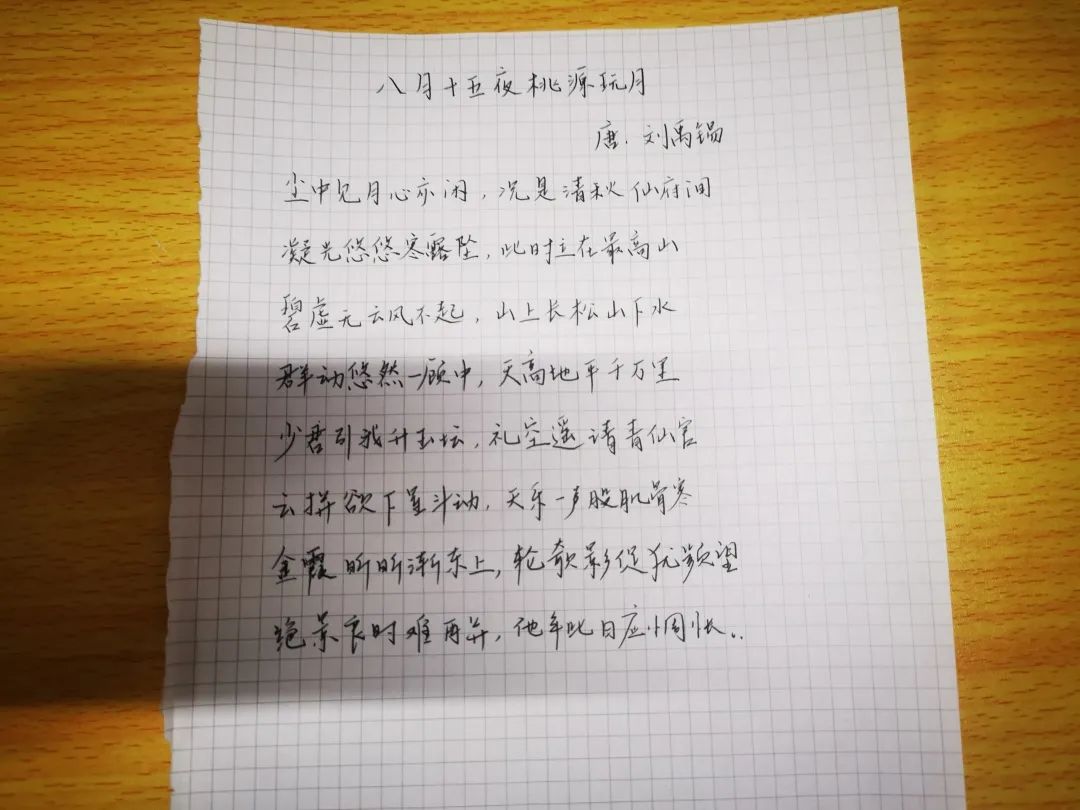 八月十五夜桃源玩月
唐.刘禹锡
尘中见月心亦闲，况是清秋仙府间
凝光悠悠寒露坠，此时立在最高山
碧虚无云风不起，山上长松山下水
群动悠然一顾中，天高地平千万里
少君引我升玉坛，礼空遥请青仙官
云拼欲下星斗动，天乐一声股肌骨寒
金霞昕昕渐东上，轮欹影促犹频望
绝景良时难再并，他年此日应惆怅..